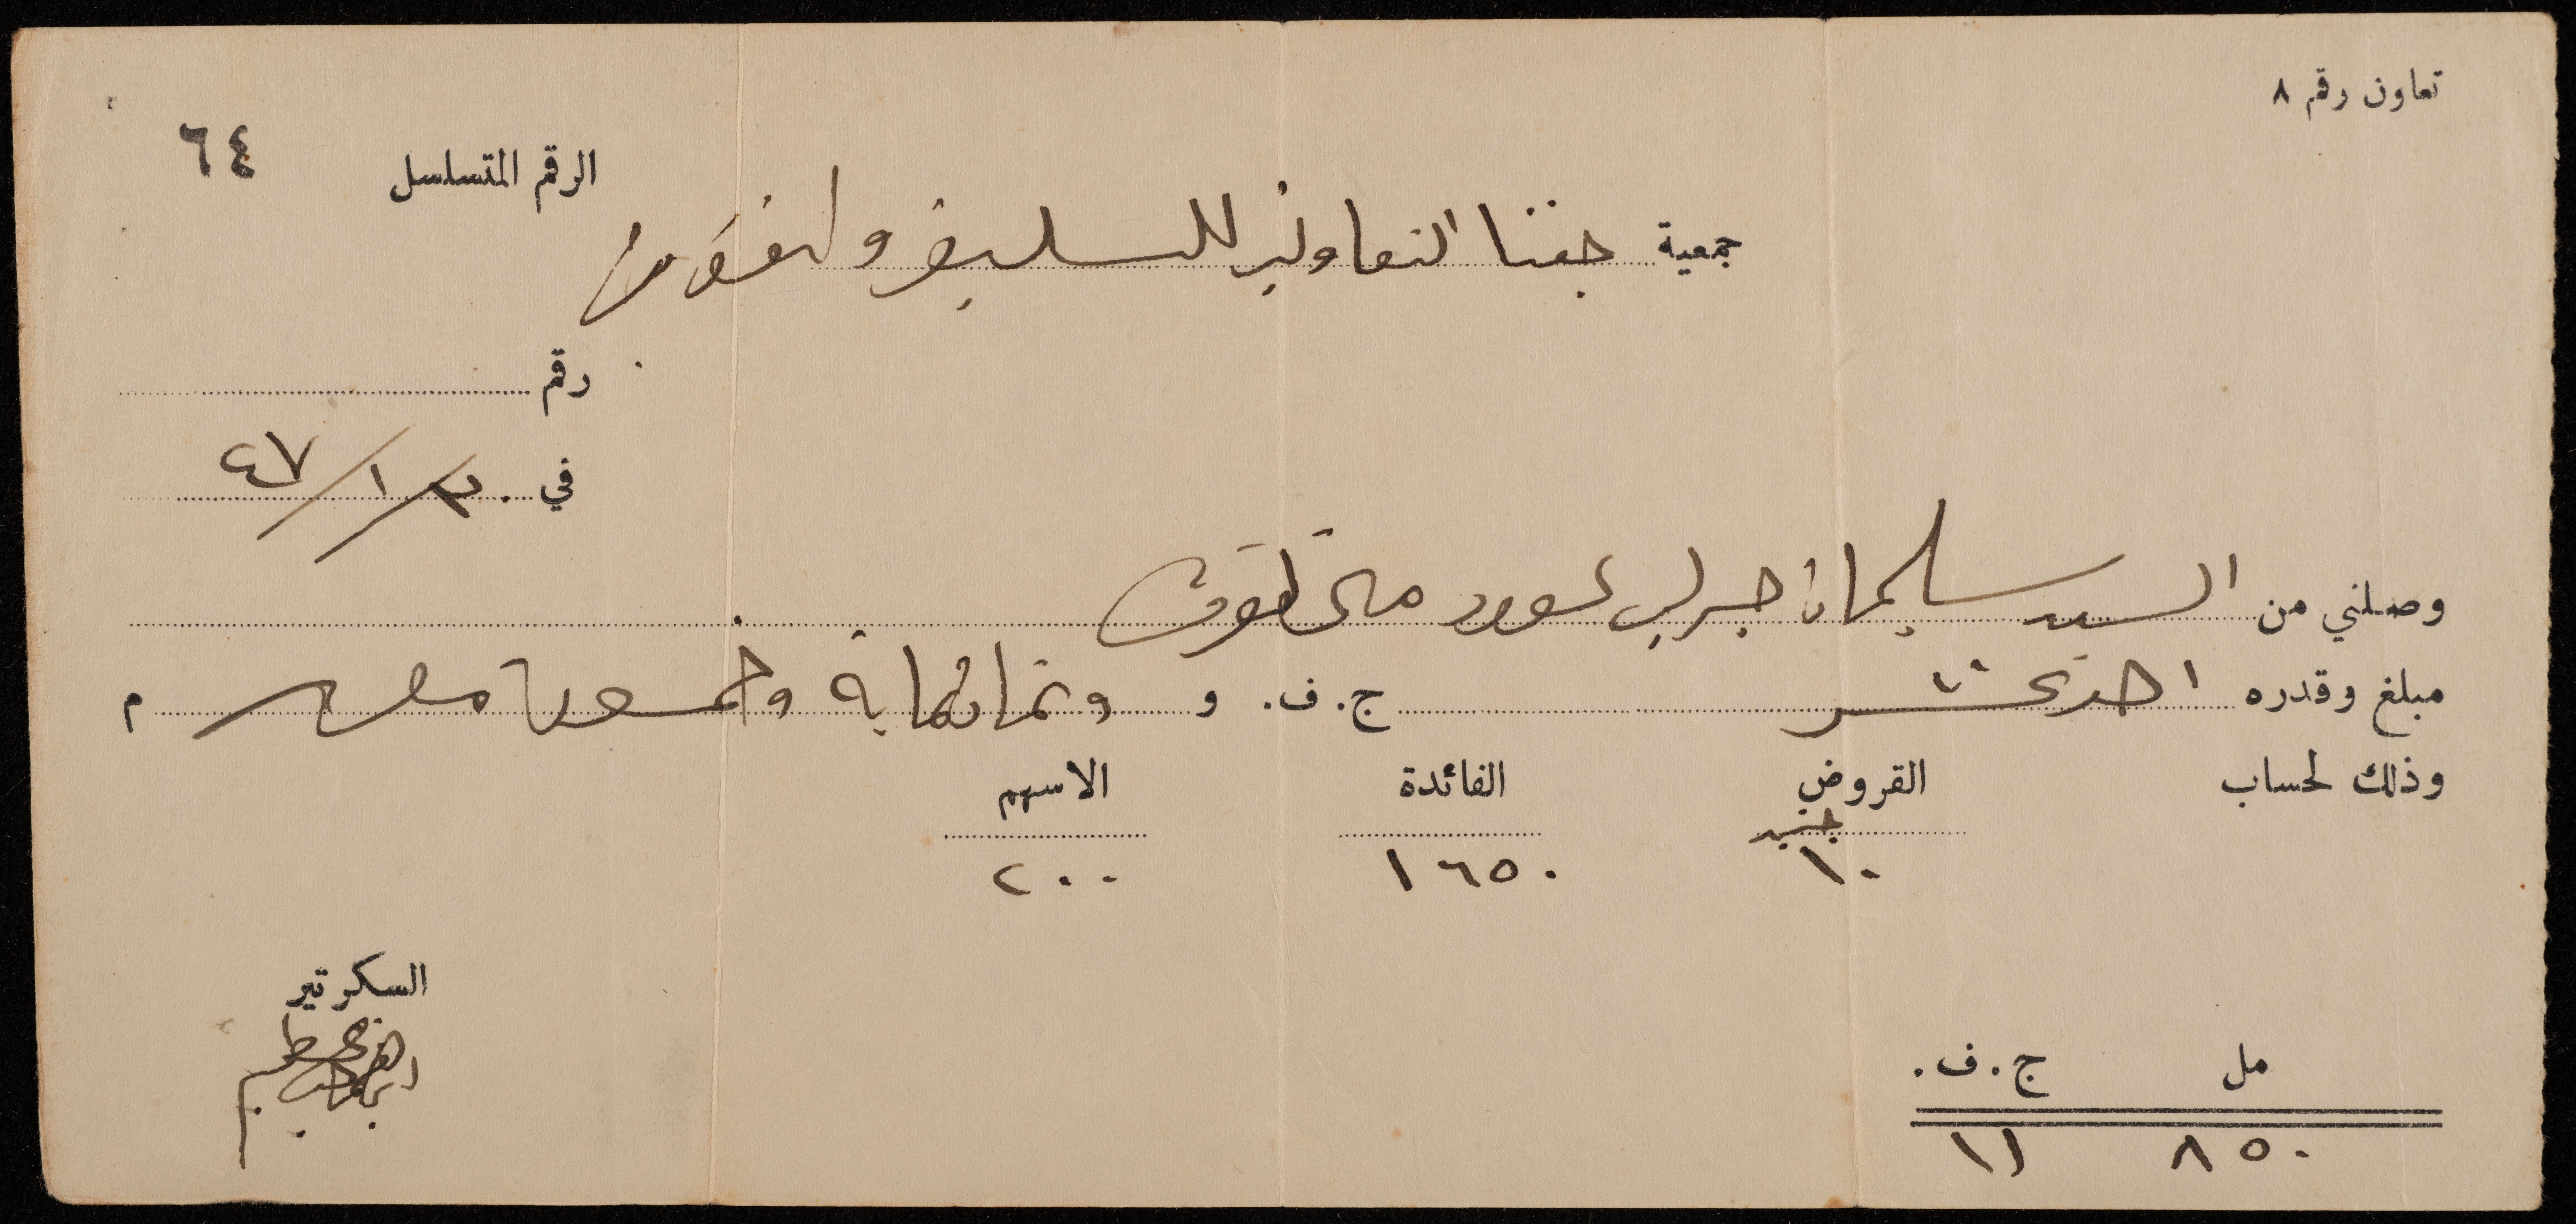 تعاون رقم ٨
الرقم المتسلسل ٦٤
جمعية جفنا التعاونية للتسليف والتوفير
رقم
في ٣٠/١/٤٧
وصلني من السيد سليمان جبرا
مبلغ وقدره احد عشر ج. ف. و وثمانماية وخمسون م
وذلك لحساب القروض الفائدة الاسهم
جنيه
١٠ ١٦٥٠ ٢٠٠
السكرتير
ابراهيم
مل ج. ف.
٨٥٠ ١١